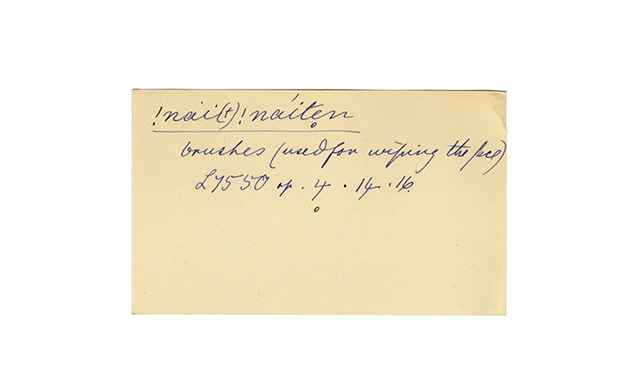 !nai(t)!náitẹn
brushes (used for wiping the face)
L7550 op. 4. 14. 16.